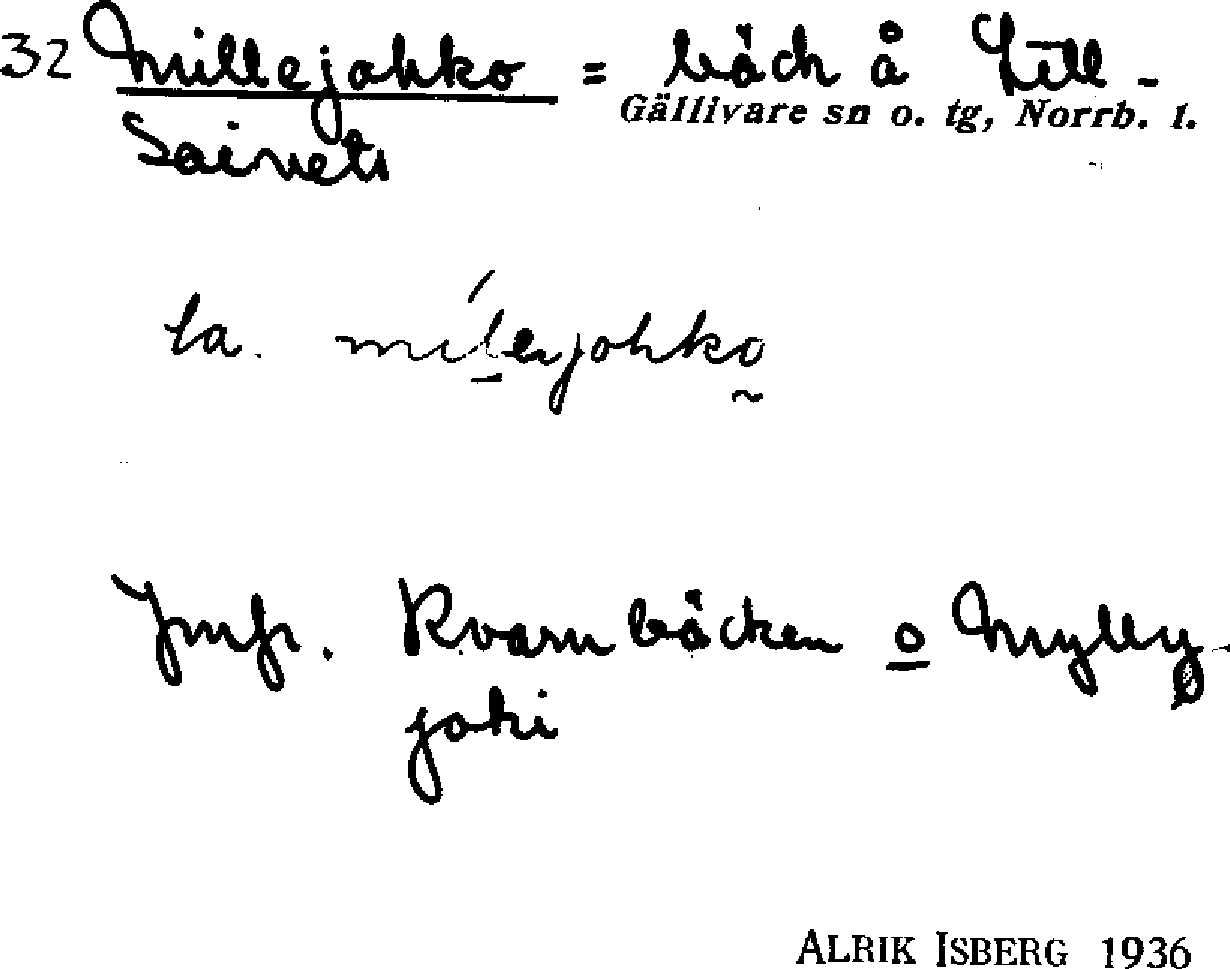 32 Millejohko = bäck å Lill-
Gällivare sn o. tg, Norrb. l.
Saivets
la. mílejohko
Jmfr. Kvarnbäcken o Mylly-
joki
ALRIK ISBERG 1936